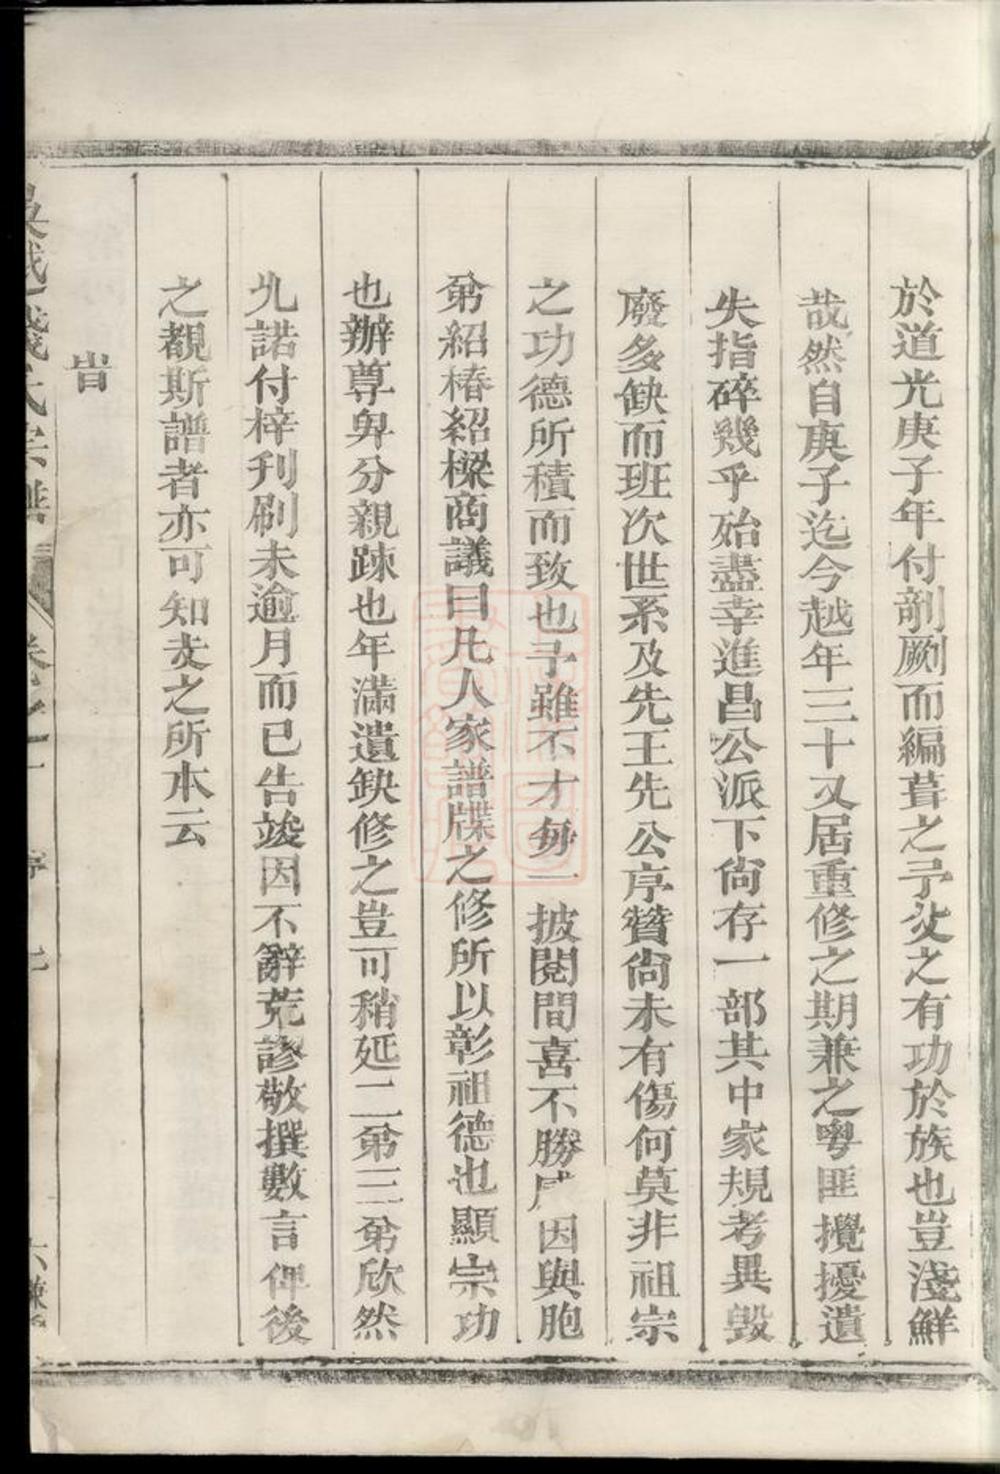 於道光庚子年付剞劂而編葺之予父之有功於族也豈淺鮮
哉然自庚子迄今越年三十又居重修之期兼之粵匪攪擾遺
失指碎幾乎殆盡幸進昌公派下尙存一部其中家規考異毀
廢多缺而班次世系及先王先公序贊尙未有傷何莫非祖宗
之功德所積而致也予雖不才每一披閱間喜不勝感因與胞
弟紹椿紹樑商議曰凡人家譜牒之修所以彰祖德也顯宗功
也辦尊卑分親踈也年滿遺缺修之豈可稍延二弟三弟欣然
允諾付梓刋刷未逾月而已告竣因不辭荒謬敬撰數言俾後
之覩斯譜者亦可知支之所本云
旹
吳越錢氏宗譜 卷之一 序